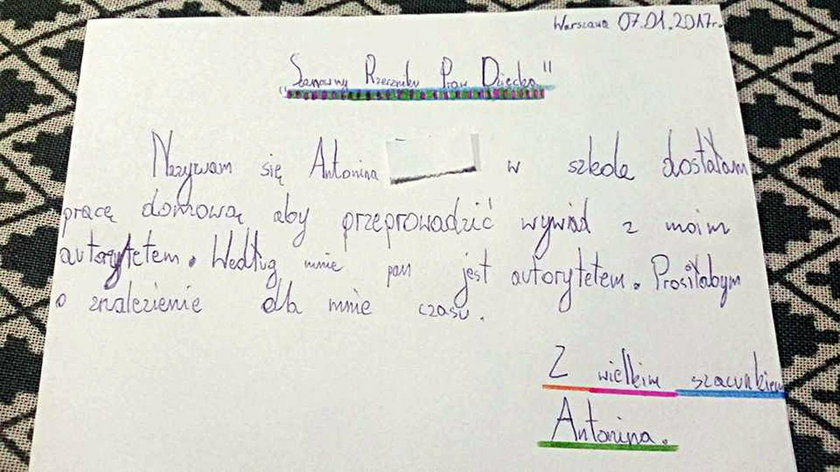 Warszawa 07.01.2017r.
„Szanowny Rzeczniku Praw Dziecka"
Nazywam się Antonina w szkole dostałam
pracę domową aby przeprowadzić wywiad z moim
autorytetem. Według mnie pan jest autorytetem. Prosiłabym
o znalezienie dla mnie czasu.
Z wielkim szacunkiem
Antonina.